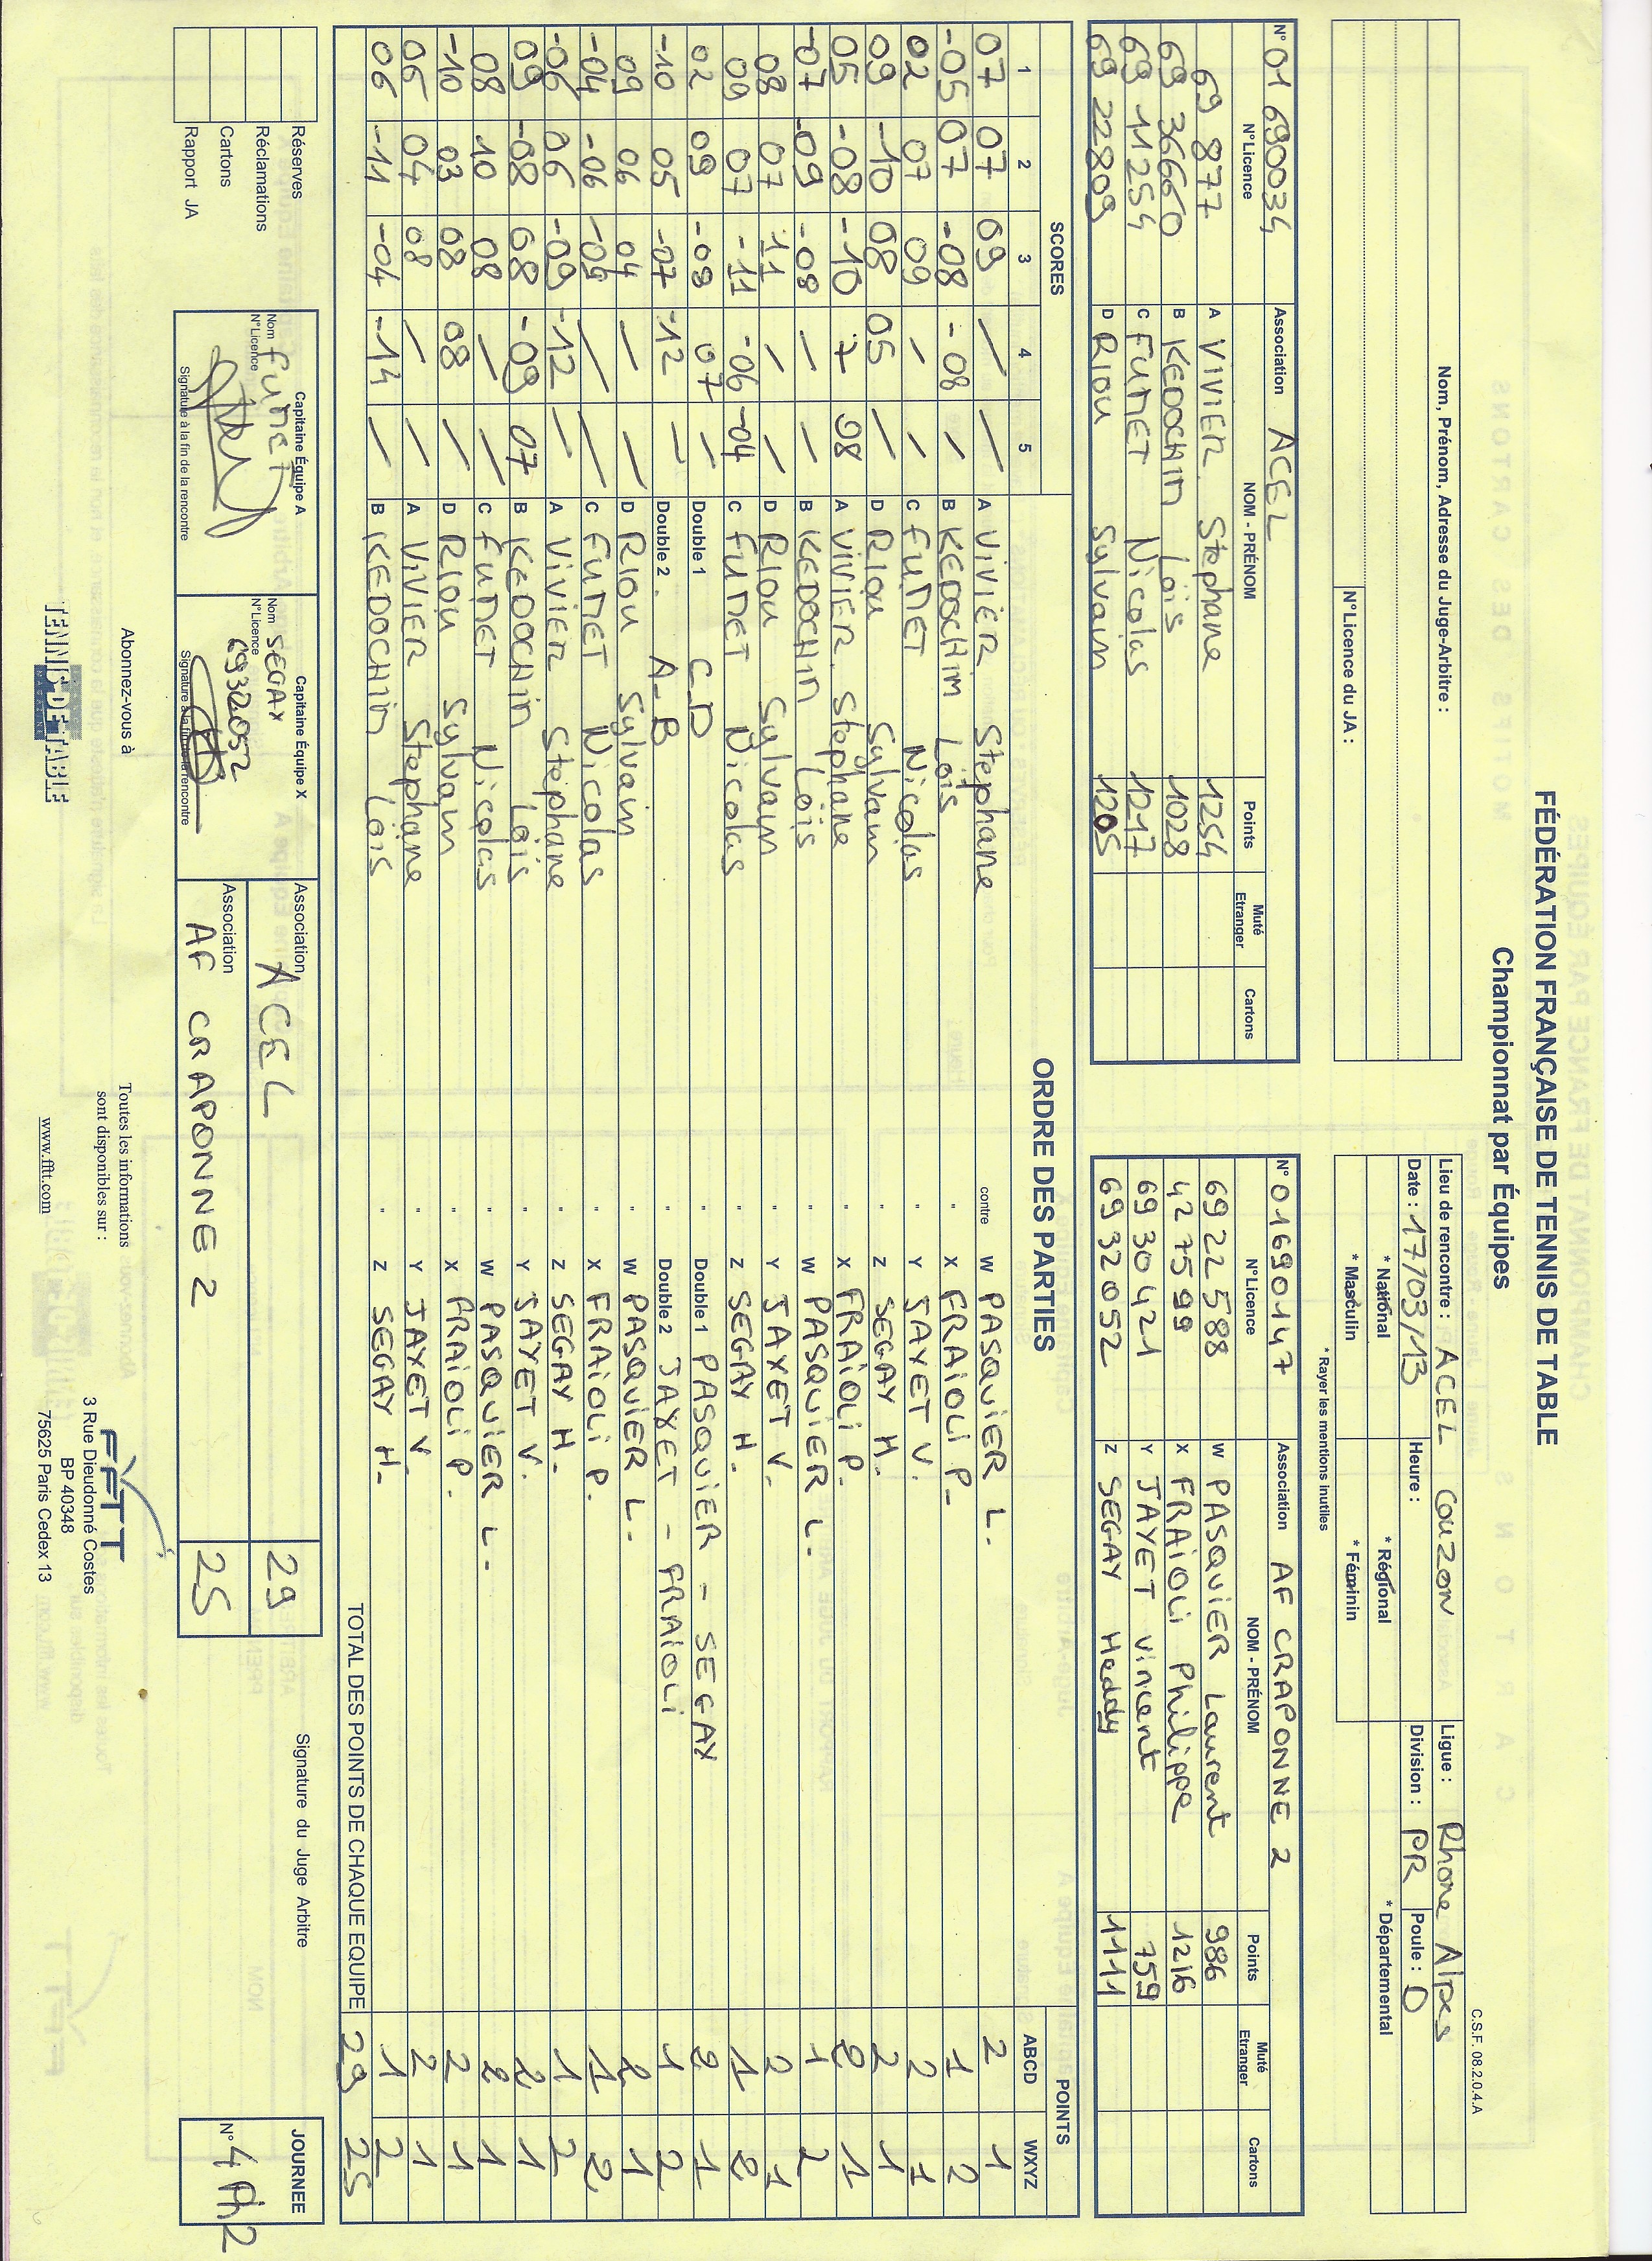 C.S.F. 08.2.0.4.A
FÉDÉRATION FRANÇAISE DE TENNIS DE TABLE
Championnat par Équipes
Nom, Prénom, Adresse du Juge-Arbitre :
N°Licence du JA :
Lieu de rencontre : ACEL Couzon
Ligue : Rhone Alpes
Date : 17/03/13
Heure :
Division : PR
Poule : D
* National
* Régional
* Départemental
* Masculin
* Féminin
* Rayer les mentions inutiles
N° 01 690034 Association ACEL
N°Licence NOM - PRÉNOM Points Muté Etranger Cartons
69 877 A VIVIER Stephane 1254
69 36660 B KEDOCHIM Loïs 1028
69 11254 C FUNET Nicolas 1217
69 22809 D RIOU Sylvain 1205
N° 01690147 Association AF CRAPONNE 2
N°Licence NOM - PRÉNOM Points Muté Etranger Cartons
69 22588 W PASQUIER Laurent 986
42 7599 X FRAIOLI Philippe 1216
69 30421 Y JAYET Vincent 759
69 32052 Z SEGAY Heddy 1111
SCORES ORDRE DES PARTIES POINTS
1 2 3 4 5 ABCD WXYZ
07 07 09 / / A VIVIER Stephane contre W PASQUIER L. 2 1
-05 07 -08 -08 / B KEDOCHIM Loïs " X FRAIOLI P. 1 2
02 07 09 / / C FUNET Nicolas " Y JAYET V. 2 1
09 -10 08 05 / D RIOU Sylvain " Z SEGAY H. 2 1
05 -08 -10 7 08 A VIVIER Stephane " X FRAIOLI P. 2 1
-07 -09 -08 / / B KEDOCHIM Loïs " W PASQUIER L. 1 2
08 07 11 / / D RIOU Sylvain " Y JAYET V. 2 1
09 07 -11 -06 -04 C FUNET Nicolas " Z SEGAY H. 1 2
02 09 -09 07 / Double 1 C-D Double 1 PASQUIER - SEGAY 2 1
-10 05 -07 -12 / Double 2 A-B " Double 2 JAYET - FRAIOLI 1 2
09 06 04 / / D RIOU Sylvain " W PASQUIER L. 2 1
-04 -06 -09 / / C FUNET Nicolas " X FRAIOLI P. 1 2
-06 06 -09 -12 / A VIVIER Stephane " Z SEGAY H. 1 2
09 -08 08 -09 07 B KEDOCHIM Loïs " Y JAYET V. 2 1
08 10 08 / / C FUNET Nicolas " W PASQUIER L. 2 1
-10 03 08 08 / D RIOU Sylvain " X FRAIOLI P. 2 1
06 04 08 / / A VIVIER Stephane " Y JAYET V. 2 1
06 -11 -04 -14 / B KEDOCHIM Loïs " Z SEGAY H. 1 2
TOTAL DES POINTS DE CHAQUE EQUIPE 29 25
Réserves
Réclamations
Cartons
Rapport JA
Capitaine Équipe A
Nom Funet
N°Licence
Signature à la fin de la rencontre
Capitaine Équipe X
Nom SEGAY
N°Licence 6932052
Signature à la fin de la rencontre
Association ACEL 29
Association AF CRAPONNE 2 25
Signature du Juge Arbitre
JOURNEE
N° 4 Ph2
Abonnez-vous à
TENNIS DE TABLE
Toutes les informations
sont disponibles sur :
www.fftt.com
FFTT
3 Rue Dieudonné Costes
BP 40348
75625 Paris Cedex 13